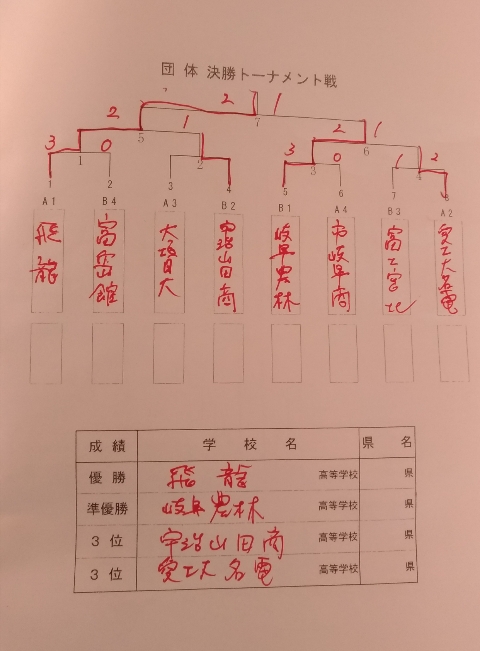 団 体 決勝トーナメント戦
2 1
7
2 1 2 1
5 6
3 0 3 0 1 2
1 2 3 4
1 2 3 4 5 6 7 8
A1 B4 A3 B2 B1 A4 B3 A2
飛龍 大垣日大 宇治山田商 岐阜農林 市岐阜商 富士宮北 愛工大名電
成績 学校名 県名
優勝 飛龍 高等学校 県
準優勝 岐阜農林 高等学校 県
3位 宇治山田商 高等学校 県
3位 愛工大名電 高等学校 県